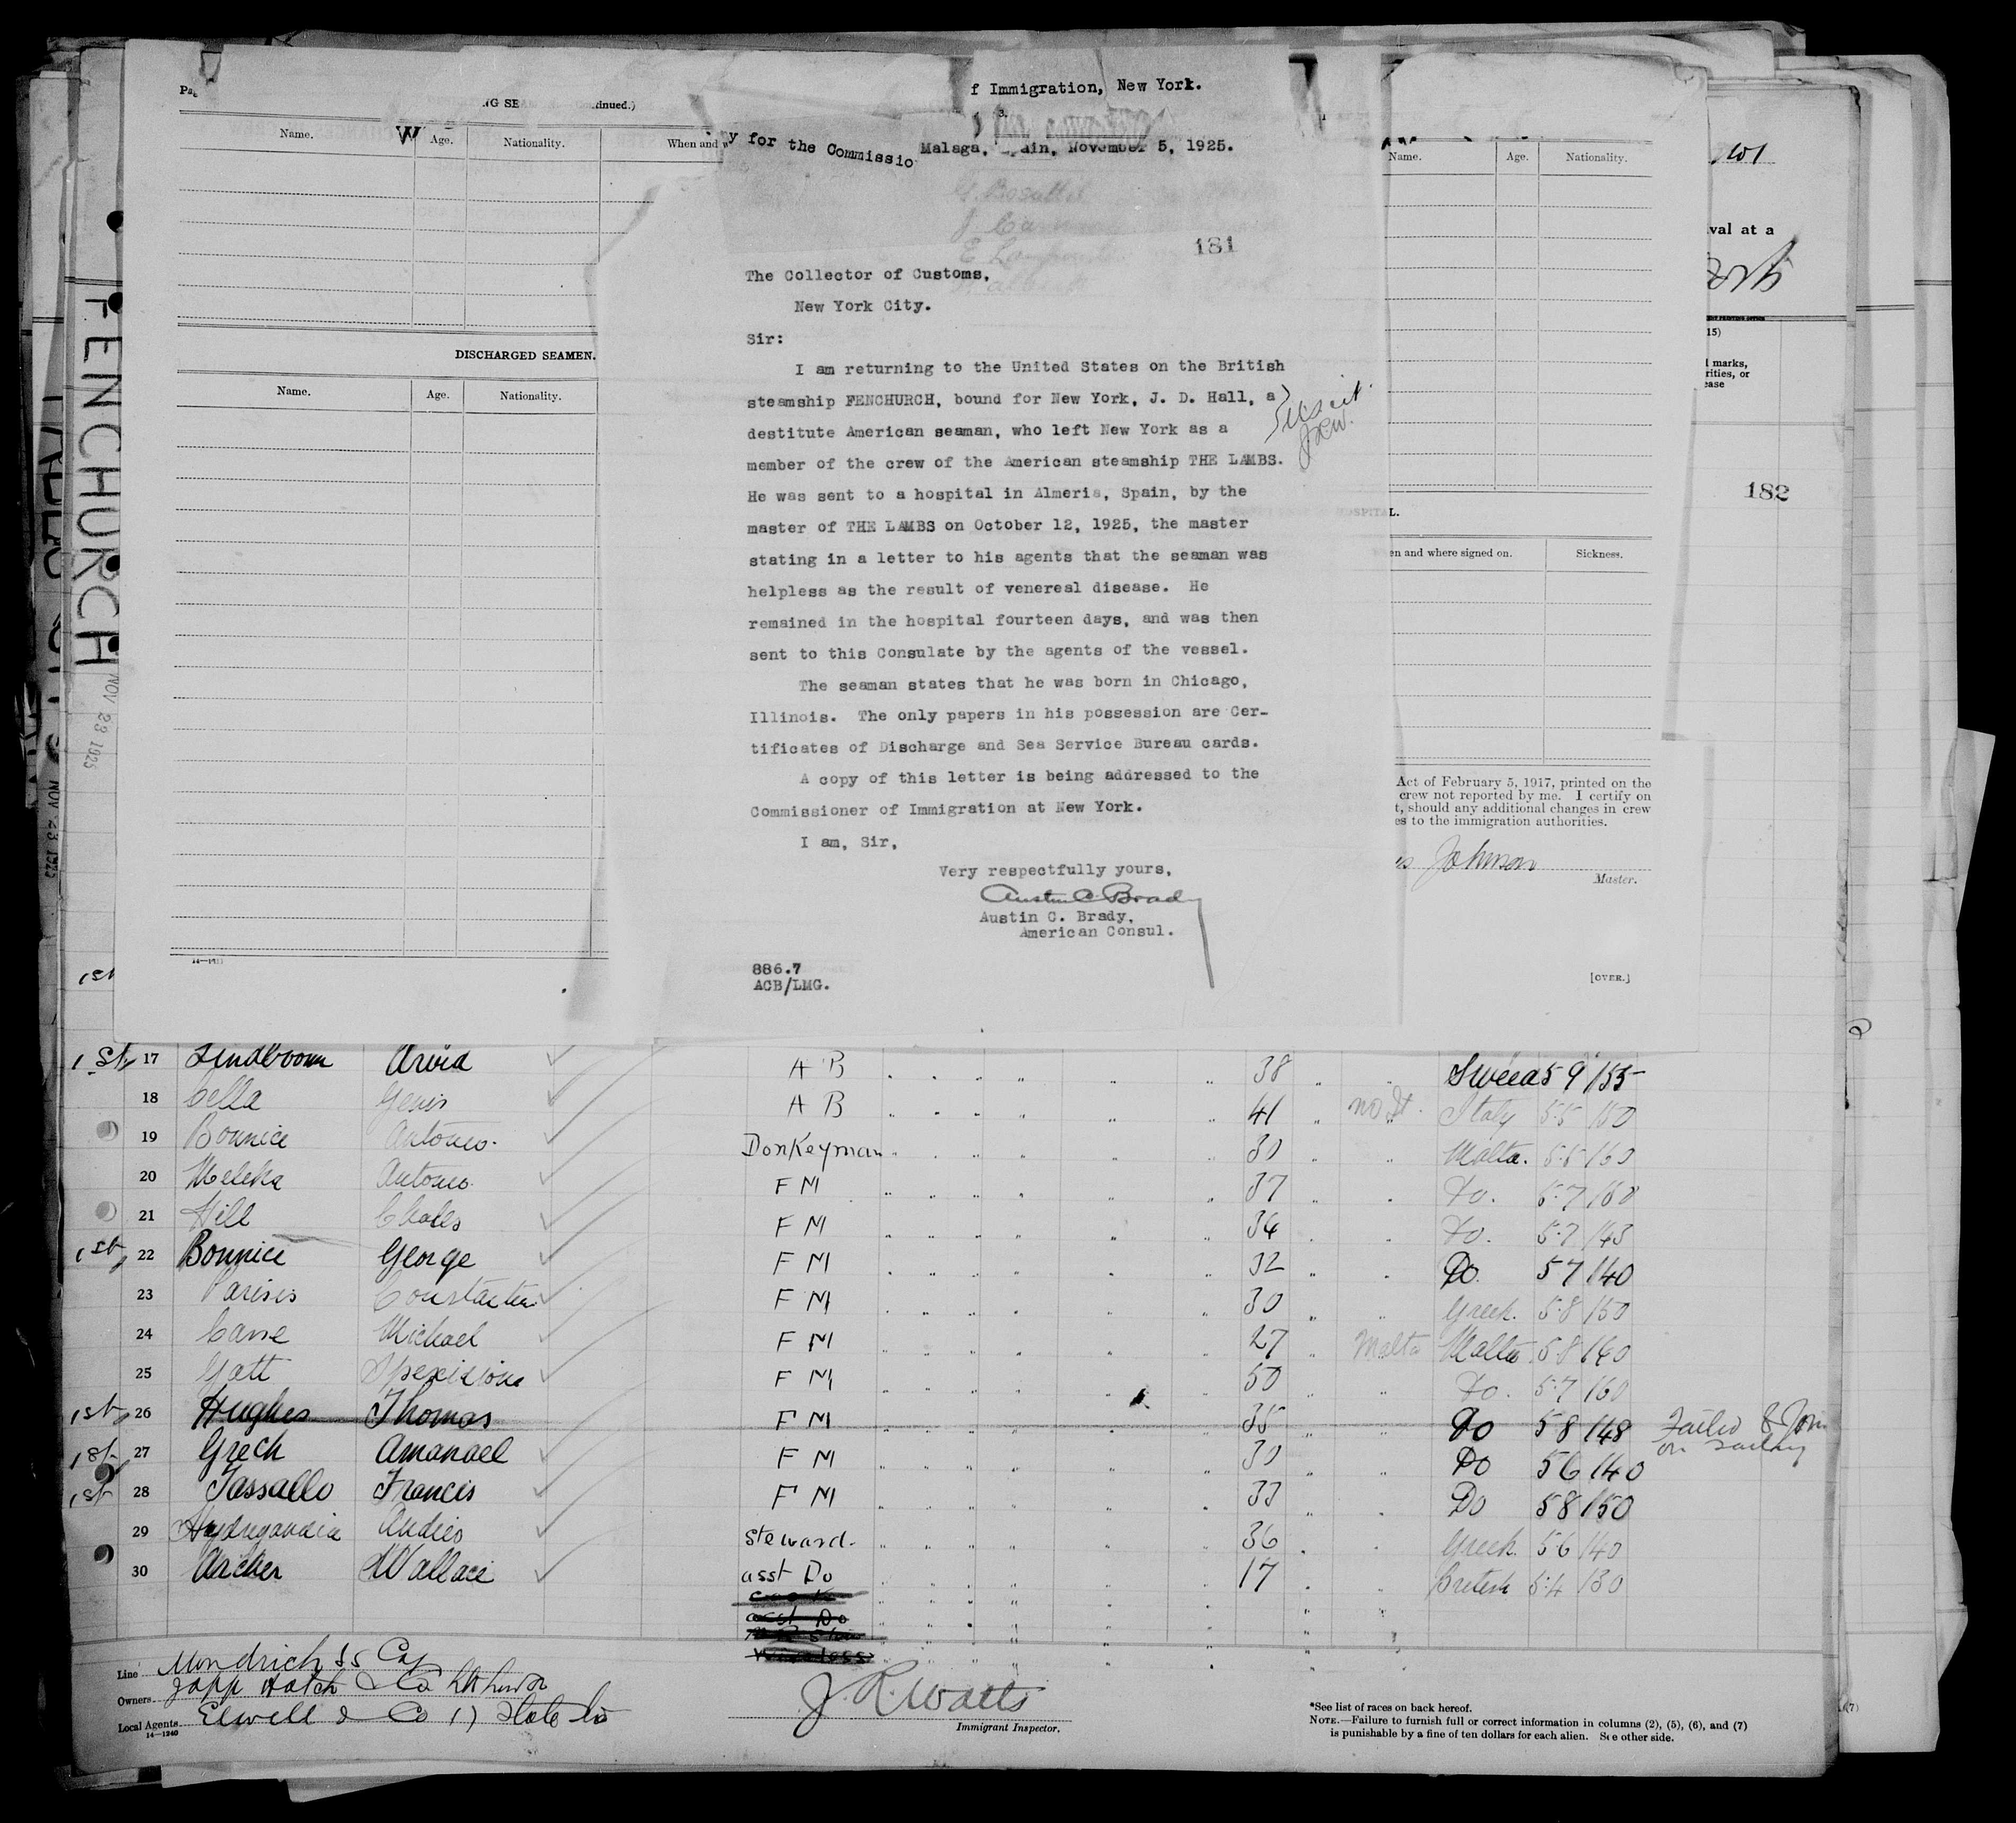 f Immigration, New York.
y for the Commissio
Malaga, Spain, November 5, 1925.
181
The Collector of Customs,
New York City.
Sir:
I am returning to the United States on the British
steamship FENCHURCH, bound for New York, J. D. Hall, a
destitute American seaman, who left New York as a
member of the crew of the American steamship THE LAMBS.
He was sent to a hospital in Almeria, Spain, by the
master of THE LAMBS on October 12, 1925, the master
stating in a letter to his agents that the seaman was
helpless as the result of venereal disease. He
remained in the hospital fourteen days, and was then
sent to this Consulate by the agents of the vessel.
The seaman states that he was born in Chicago,
Illinois. The only papers in his possession are Cer-
tificates of Discharge and Sea Service Bureau cards.
A copy of this letter is being addressed to the
Commissioner of Immigration at New York.
I am, Sir,
Very respectfully yours,
Austin C. Brady
Austin C. Brady,
American Consul.
886.7
ACB/LMG.
US cit.
JRW.
FENCHURCH
NOV 23 1925
NOV 23 1925
NG SE
tinued.)
Name. Age. Nationality. When and w
DISCHARGED SEAMEN.
Name. Age. Nationality.
Name. Age. Nationality.
HOSPITAL.
en and where signed on. Sickness.
Act of February 5, 1917, printed on the
crew not reported by me. I certify on
t, should any additional changes in crew
es to the immigration authorities.
s Johnson
Master.
[OVER.]
val at a
15)
l marks,
rities, or
ease
182
1st
1st 17 Lindboom Arvid A B 38 Swed 5 9 155
18 Cella A B 41 Italy 5 5 150
19 Bonnice Antonio. Donkeyman 30 Malta. 5 5 160
20 Meleka Antonio F M 37 Do. 5 7 168
21 Hill Chales F M 34 Do. 5 7 143
1st 22 Bonnice George F M 32 Do. 5 7 140
23 Parisis F M 30 Greek. 5 8 150
24 Michael F M 27 Malta Malta 5 8 160
25 Gatt F M 50 Do. 5 7 160
1st 26 Hughes Thomas F M 35 Do 5 8 148 Failed to Join
on sailing
1st 27 Grech Amanael F M 30 Do 5 6 140
1st 28 Tassallo Francis F M 33 Do 5 8 150
29 Steward. 36 Greek. 5 6 140
30 Archer Wallace asst Do 17 British 5 4 130
asst Do
Line
Owners
Local Agents Elwell & Co 17 State St
14—1240
J. R. Watts
Immigrant Inspector.
*See list of races on back hereof.
NOTE.—Failure to furnish full or correct information in columns (2), (5), (6), and (7)
is punishable by a fine of ten dollars for each alien. See other side.